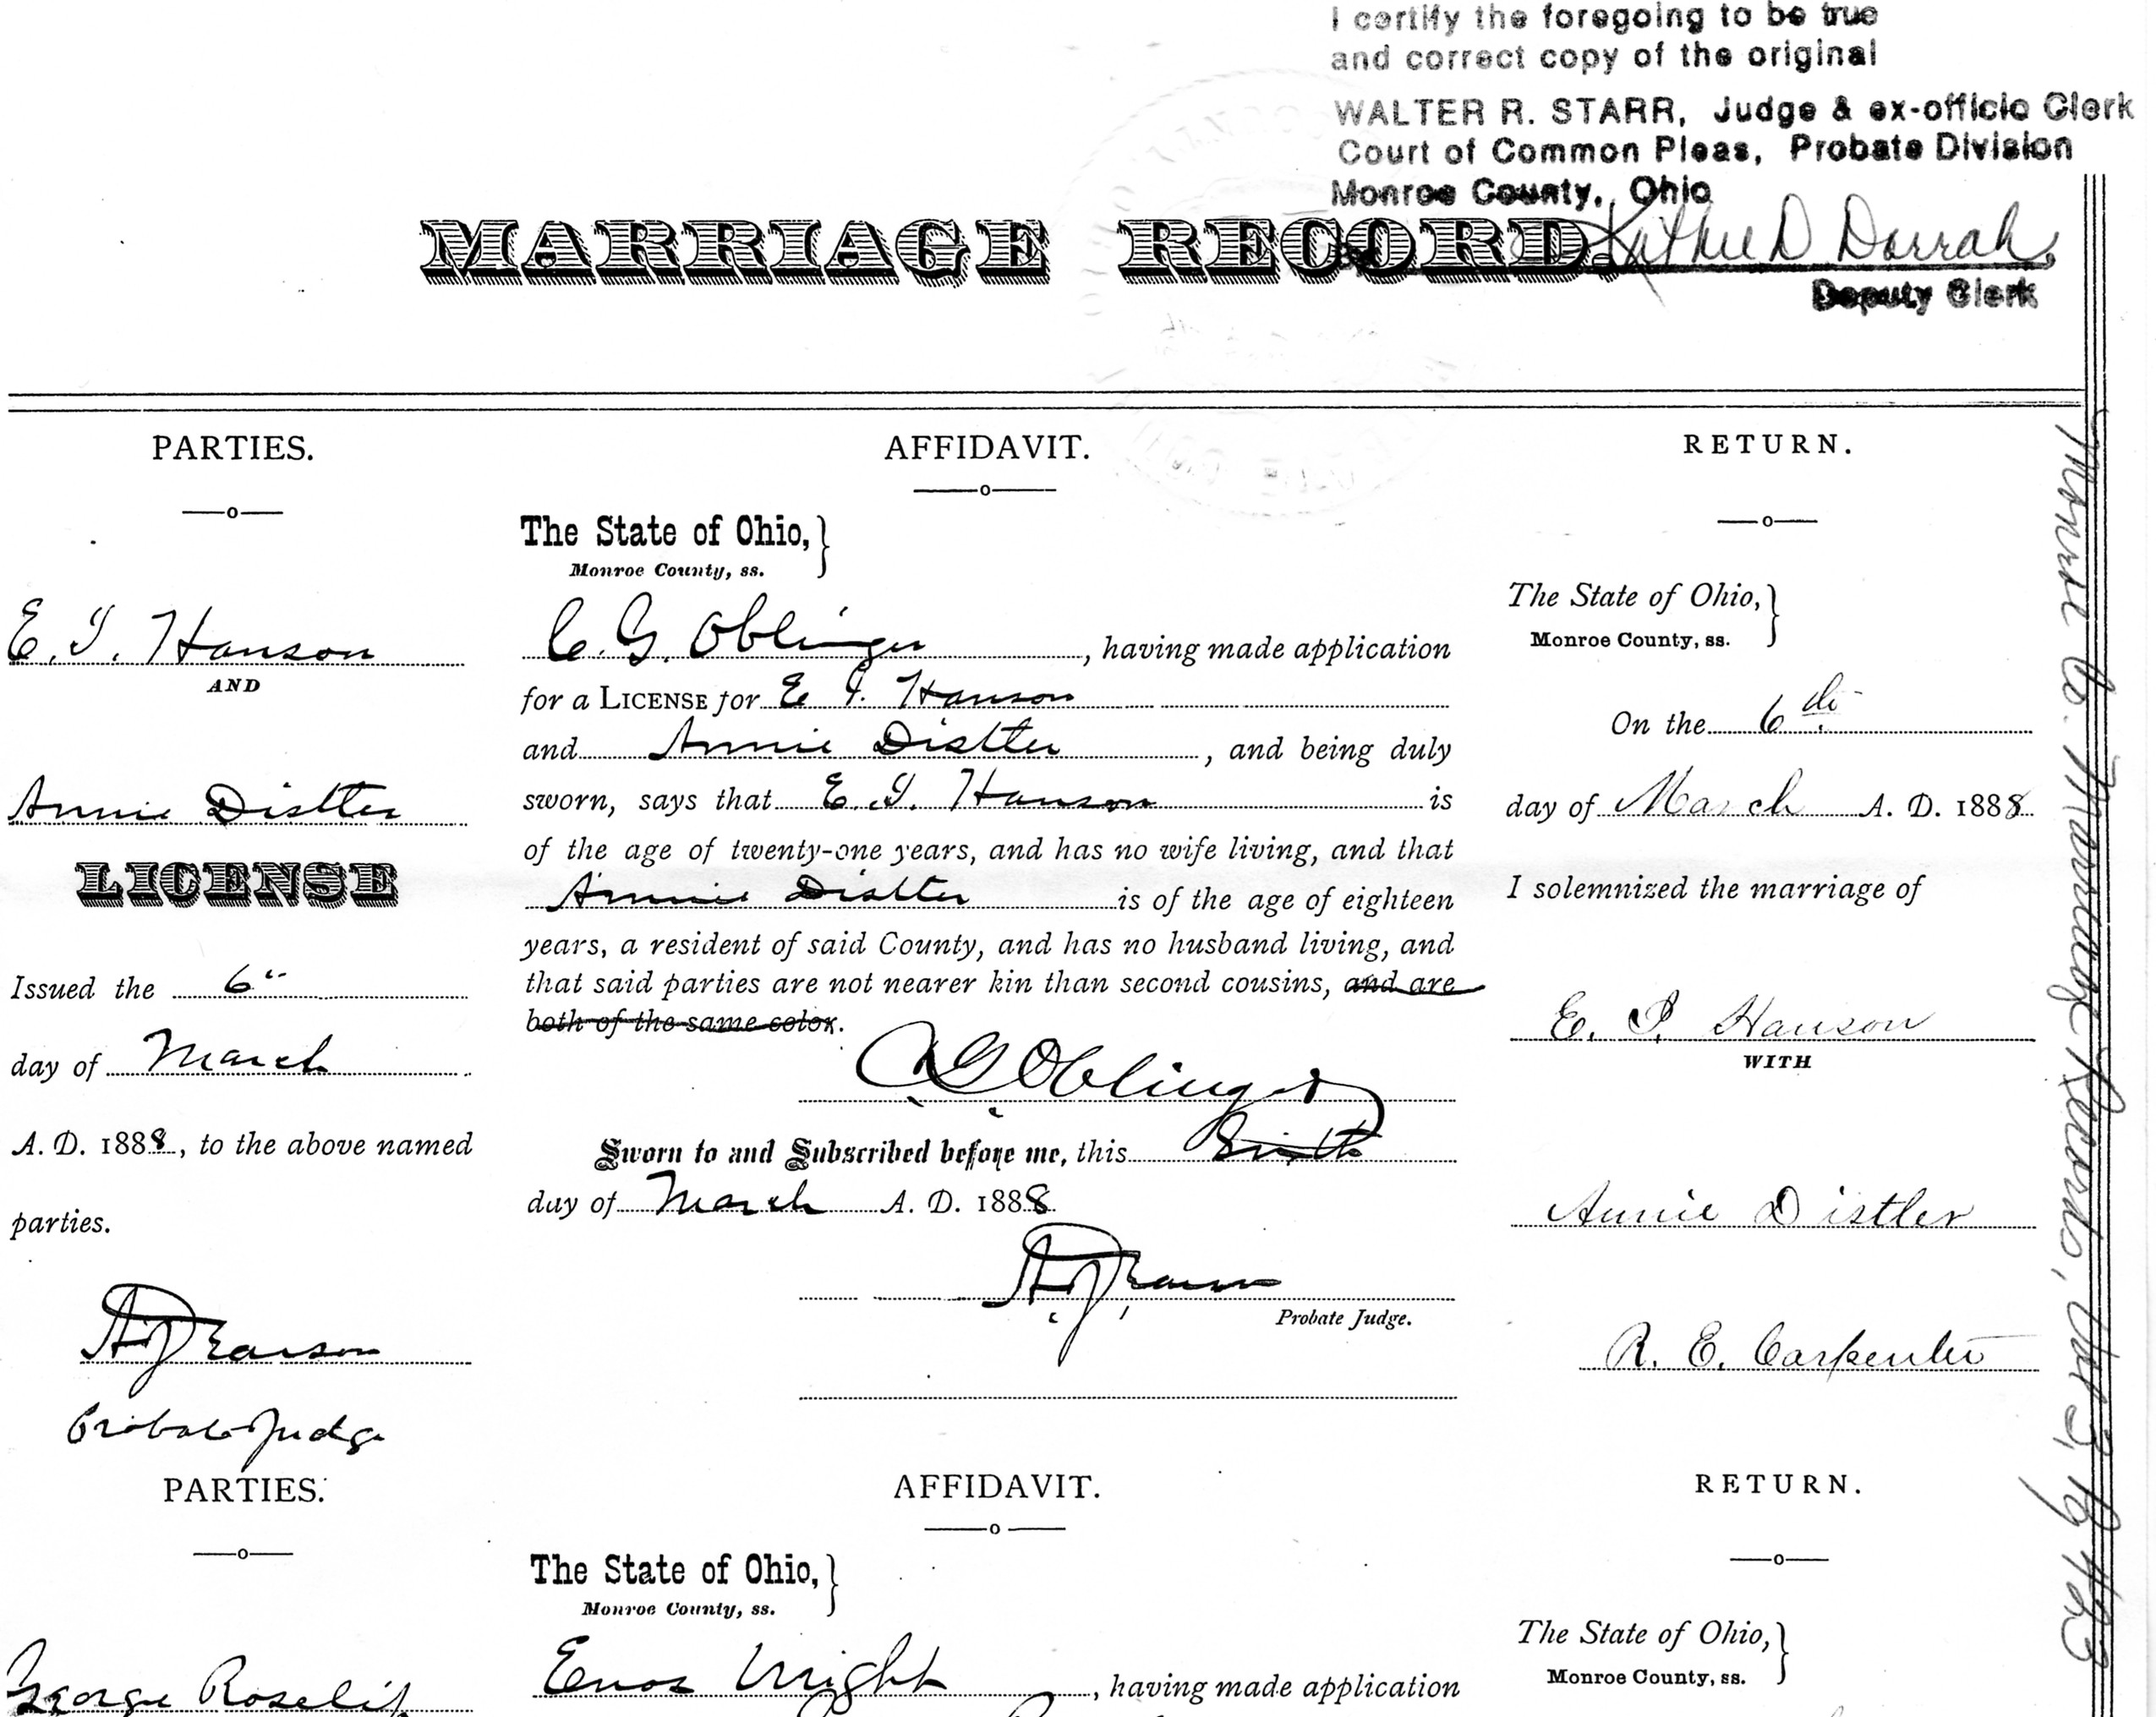 I certify the foregoing to be true
and correct copy of the original
WALTER R. STARR, Judge & ex-officio Clerk
Court of Common Pleas, Probate Division
Monroe County, Ohio
MARRIAGE RECORD.
D Darrah,
Deputy Clerk
PARTIES.
E. I. Hanson
AND
Annie Distler
LICENSE
Issued the 6"
day of March
A. D. 1888, to the above named
parties.
Probate Judge
AFFIDAVIT.
The State of Ohio,}
Monroe County, ss.
C. G. Oblinger, having made application
for a LICENSE for E. I. Hanson
and Annie Distler, and being duly
sworn, says that E. I. Hanson is
of the age of twenty-one years, and has no wife living, and that
Annie Distler is of the age of eighteen
years, a resident of said County, and has no husband living, and
that said parties are not nearer kin than second cousins, and are
both of the same color.
C. G. Oblinger
Sworn to and Subscribed before me, this Sixth
day of March A. D. 1888.
Probate Judge.
RETURN.
The State of Ohio,}
Monroe County, ss.
On the 6th
day of March A. D. 1888.
I solemnized the marriage of
E. I. Hanson
WITH
Annie Distler
R. E. Carpenter
Monroe Co. Marriage Records, Vol 3, Pg 423
PARTIES.
George Roselip
AFFIDAVIT.
The State of Ohio,}
Monroe County, ss.
Enos Wright, having made application
RETURN.
The State of Ohio,}
Monroe County, ss.